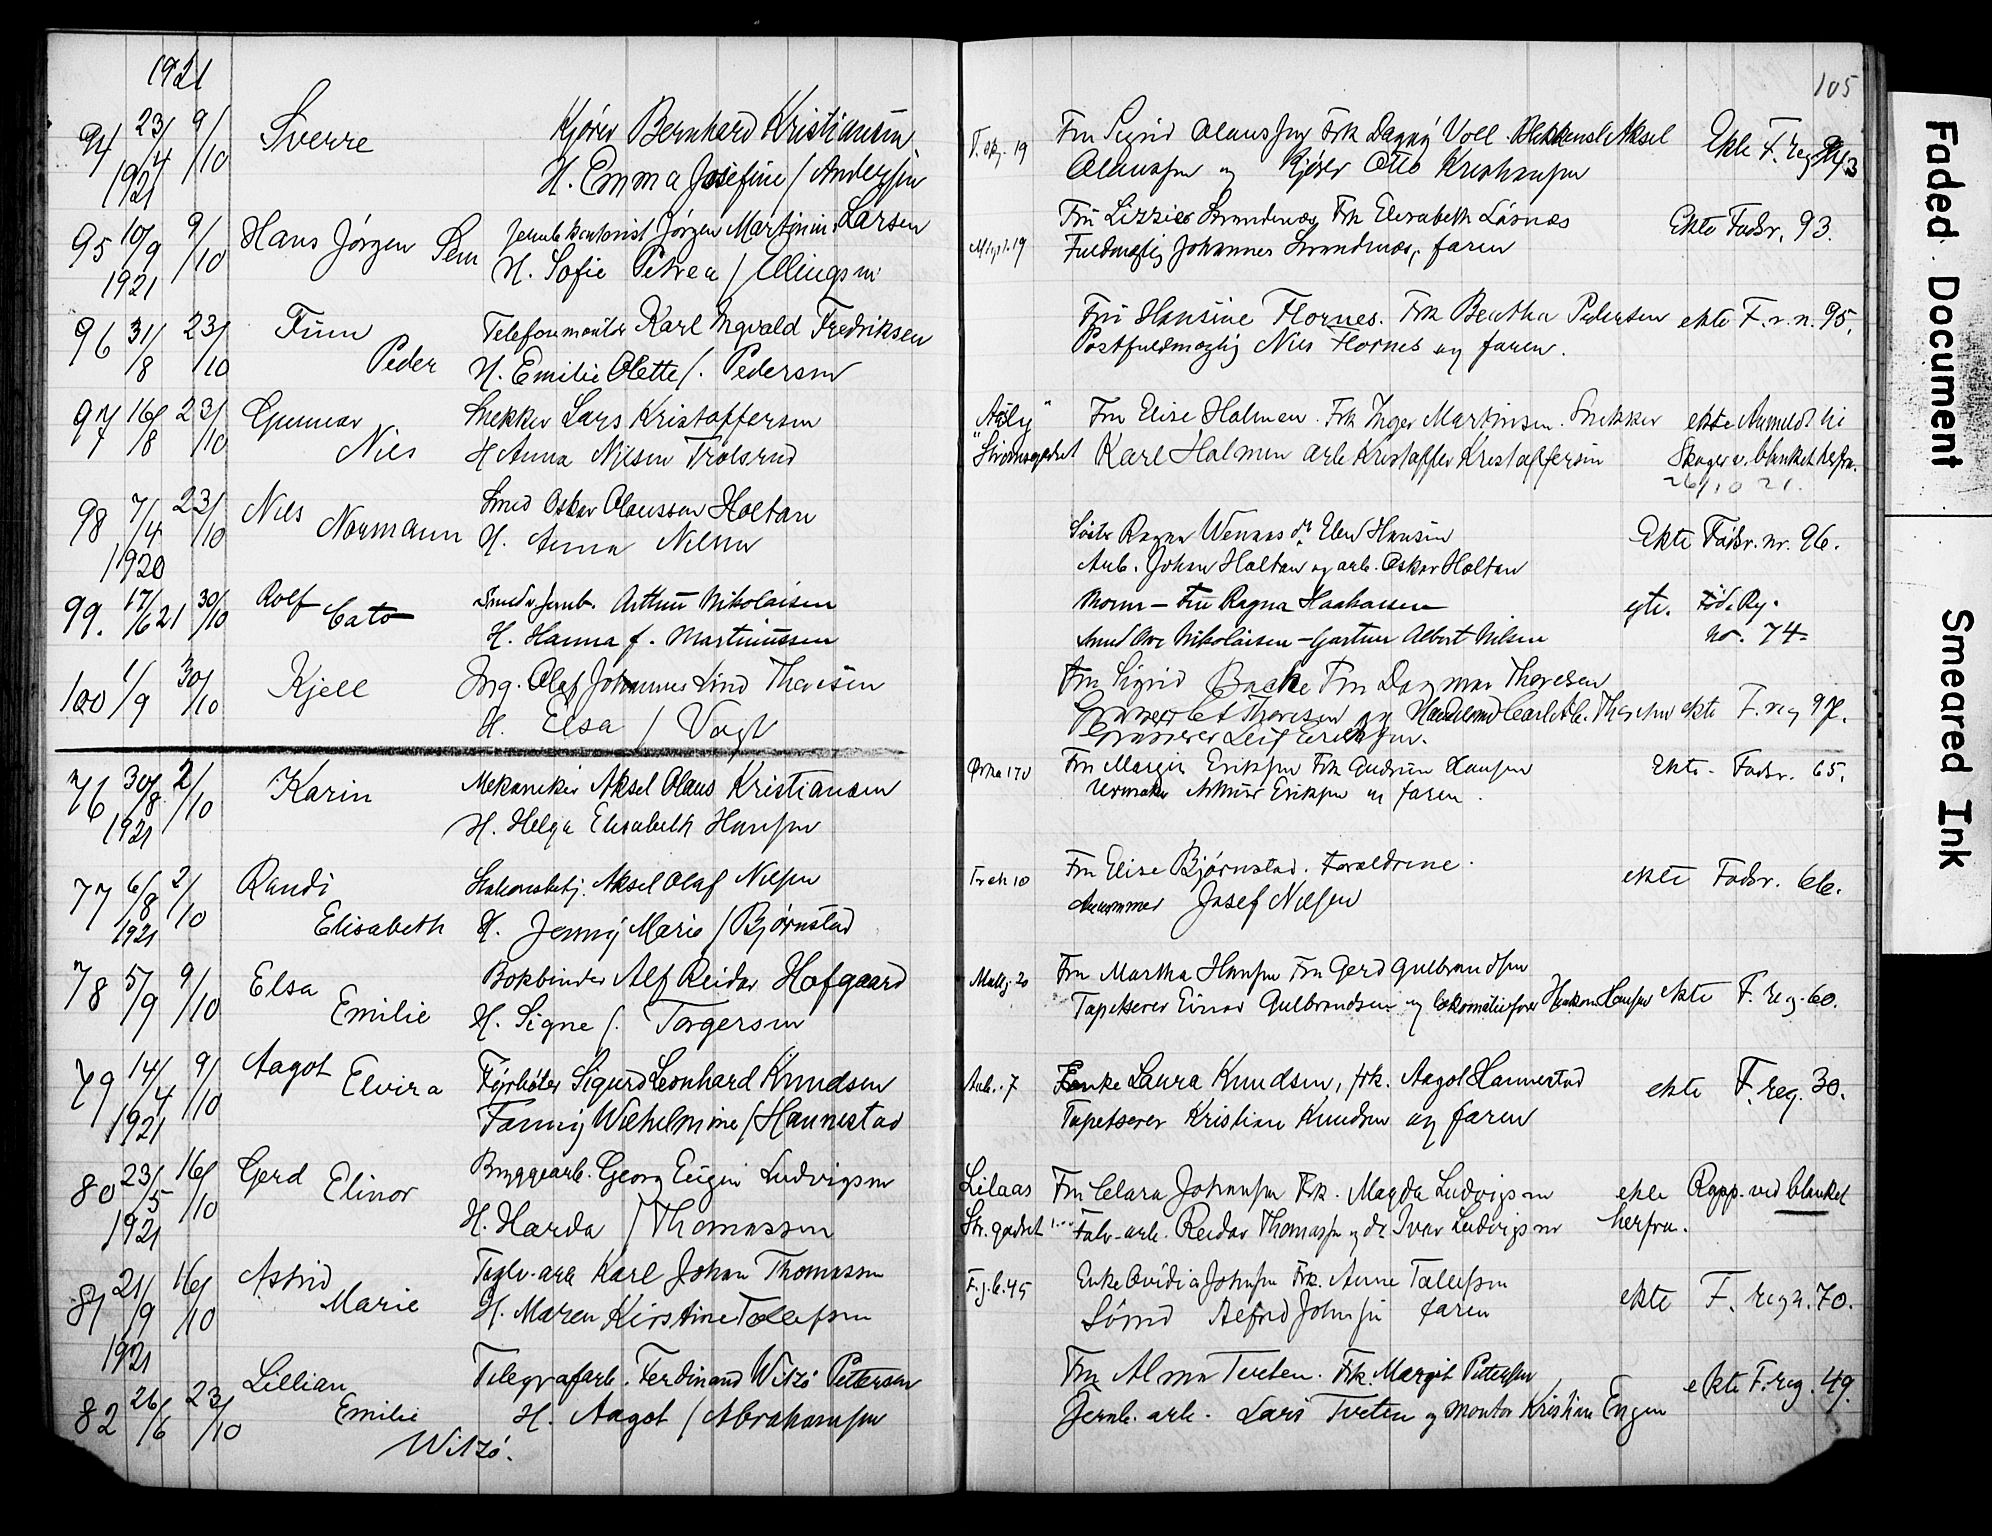 1921
105
94 23/4 1921 9/10 Sverre Kjører Bernhard Kristiansen
H. Emma Josefine / Anderssen
T. 19 Fru Sigrid Olaussen Frk Dagny Voll Aksel
Olaussen og Kjører Otto Kristiansen
Ekte F. reg 93
95 10/9 1921 9/10 Hans Jørgen Sem Jernb.kontorist Jørgen Martinius Larsen
H. Sofie Petrea / Ellingsen
19 Fru Lizzie Strandnæs, Frk Elisabeth Løsnæs
Fuldmægtig Johannes Strandnæs, faren
Ekte Fødsr. 93.
96 31/8 23/10 Finn Telefonmontør Karl Ingvald Fredriksen
Peder H. Emilie Olette /. Pedersen
Fru Hansine Flornes. Frk Beatha Pedersen ekte F. r. n. 95.
Postfuldmægtig Nils Flornes og faren.
97 16/8 23/10 Gunnar Snekker Lars Kristoffersen
Nils H Anna Nilsen Trolsrud
"Aasly" Fru Elise Holmen. Frk Inger Martinsen. Snekker ekte Anmeldt til
"Strømsgodset Karl Holmen arb Kristoffer Kristoffersen Skoger v. blanket herfra.
26/10 21.
98 7/4 1920 23/10 Nils Smed Oskar Olaussen Holtan
Normann H. Anna Nilsen
Søster Ragna Wennas do Elen Hansen
Arb. Johan Holtan og arb. Oskar Holtan
Ekte Fødsr. nr. 96.
99. 17/6 21 30/10 Rolf Cato Smed v Jernb. Arthur Nikolaisen
H. Hanna f. Martinussen
Moren - Fru Ragna Haakonsen
Smed Ove Nikolaisen - Gartner Albert Nilsen
gte. Fød. Rg.
no. 74-
100 1/9 30/10 Kjell Ing. Olaf Johannes Lind Thoresen
H. Elsa / Vogt
Fru Sigrid Backe Fru Dagmar Thoresen
Grosserer Thoresen og Carl Thoresen ekte F. reg 97.
Grosserer Leif Erichsen.
76 30/8 1921 2/10 Karin Mekaniker Aksel Olaus Kristiansen
H. Helga Elisabeth Hansen
170 Fru Margit Eriksen Frk Gudrun Hansen
Urmaker Arthur Eriksen og faren.
Ekte. Fødsr. 65.
77 6/8 1921 2/10 Randi Stationsbetj. Aksel Olaf Nilsen
Elisabeth H. Jenny Marie / Bjørnstad
10 Fru Elise Bjørnstad. Forældrene.
Josef Nilsen
ekte Fødsr. 66.
78 5/9 9/10 Elsa Bokbinder Alf Reidar Hofgaard
Emilie H. Signe /. Torgersen
20 Fru Martha Hansen Fru Gerd Gulbrandsen
Tapetserer Einar Gulbrandsen og lokomotivfører Haakon Hansen ekte F. reg. 60.
79 14/4 1921 9/10 Aagot Fyrbøter Sigurd Leonhard Knudsen
Elvira Fanny Wilhelmine / Hannestad
7 Enke Laura Knudsen, frk. Aagot Hannestad
Tapetserer Kristian Knudsen og faren
ekte F. reg. 30.
80 23/5 1921 16/10 Gerd Bryggearb. Georg Eugen Ludvigsen
Elinor H. Harda / Thomassen
Lilaas Fru Clara Johansen Frk. Magda Ludvigsen ekte Rapp. ved blanket
Str. godset Fabr-arb. Reidar Thomassen og do Ivar Ludvigsen herfra.
81 21/9 1921 16/10 Astrid Teglv.arb Karl Johan Thomassen
Marie H. Maren Kirstine Tollefsen
45 Enke Ovidia Johnsen Frk. Anne Tollefsen
Sømd Alfred Johnsen faren
ekte F. reg n. 70.
82 26/6 23/10 Lillian Telegrafarb. Ferdinand Witzø Pettersen
Emilie H. Aagot / Abrahamsen
Witzø.
Fru Alma Tveten. Frk. Margit Pettersen
Jernb. arb. Lars Tveten og montør Kristian Engen
ekte F. reg. 49.
Faded Document
Smeared Ink